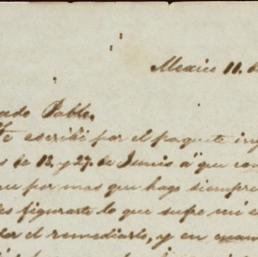 Mexico 11. d
ado Pablo.
Te escribí por el paquete in
s de 13. y 27. de Junio á que con
ue por mas que hago siempre
es figurarte lo que sufre mi
der el remediarlo, y en cuan